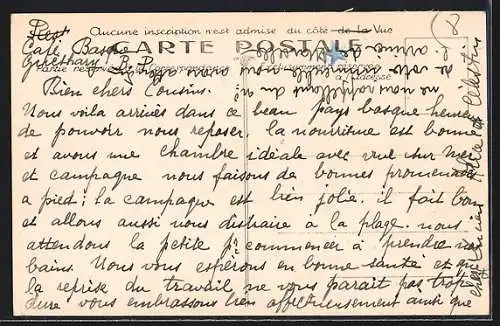 Aucune inscription n'est admise du côté de la Vue
CARTE POSTALE
Café Basque
Guethary B. P.
Bien chers Cousins.
Nous voila arrivés dans ce beau pays basque heureux
de pouvoir nous reposer. la nourriture est bonne
et avons une chambre idéale avec vue sur mer
et campagne nous faisons de bonnes promenades
a pied; la campagne est bien jolie. il fait bon
et allons aussi nous distraire à la plage. nous
attendons la petite pr commencer à prendre nos
bains. Nous vous espérons en bonne santé et que
la reprise du travail ne vous parait pas trop
dure vous embrassons bien affectueusement ainsi que
8